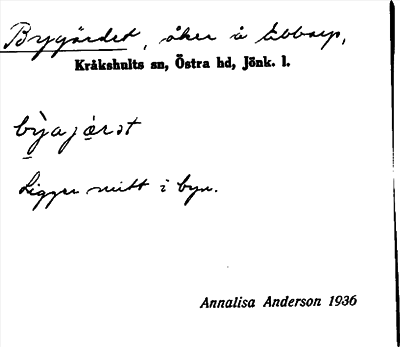 Bygärdet, åker å Ebbarp,
Kråkshults sn, Östra hd, Jönk. l.
bỳa järət
Ligger mitt i byn.
Annalisa Anderson 1936